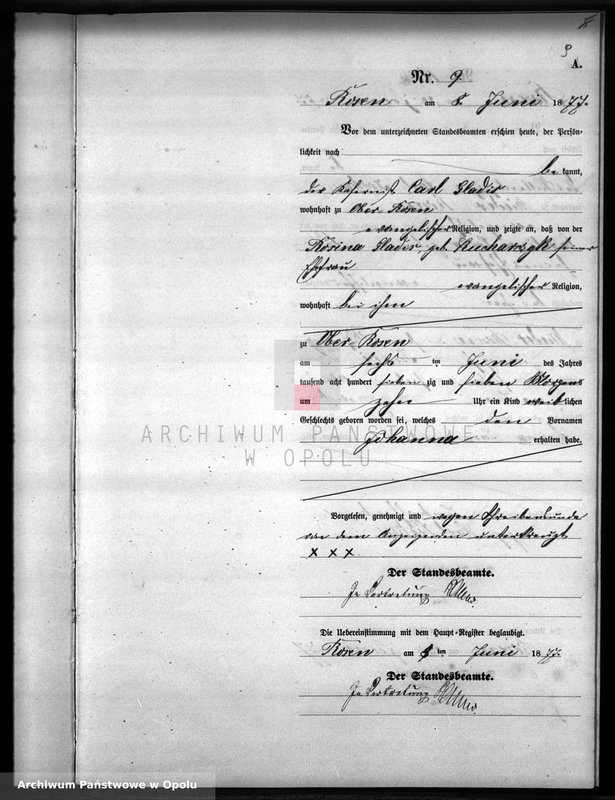 8
9
A.
Nr. 9
Rosen am 8. Juni 1877.
Vor dem unterzeichneten Standesbeamten erschien heute, der Persön-
lichkeit nach
bekannt,
der Carl Gladis
wohnhaft zu Ober-Rosen
evangelischer Religion, und zeigte an, daß von der
Rosina Gladis, geb. Kucharzyk seiner
Ehefrau
evangelischer Religion,
wohnhaft bei ihm
zu Ober-Rosen
am sechs ten Juni des Jahres
tausend acht hundert sieben zig und sieben Morgens
um zehn Uhr ein Kind weiblichen
Geschlechts geboren worden sei, welches den Vornamen
Johanna erhalten habe.
ARCHIWUM PAŃSTWOWE
W OPOLU
Vorgelesen, genehmigt und wegen Schreibensunkunde
von dem Anzeigenden unterkreuzt
x x x
Der Standesbeamte.
In Vertretung
Die Uebereinstimmung mit dem Haupt-Register beglaubigt.
Rosen am 8 ten Juni 1877.
Der Standesbeamte.
In Vertretung
Archiwum Państwowe w Opolu